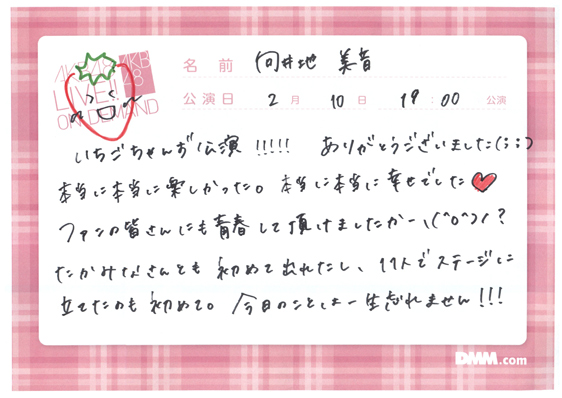 AKB48 AKB48
LIVE!!
ON DEMAND
名前 向井地 美音
公演日 2月 10日 19:00 公演
いちごちゃんず公演 !!!!! ありがとうございました(;;)
本当に本当に楽しかった。本当に本当に幸せでした♥
ファンの皆さんにも青春して頂けましたかー、\(^o^)/?
たかみなさんとも初めて出れたし、11人でステージに
立てたのも初めて。今日のことは一生忘れません!!!
DMM.com